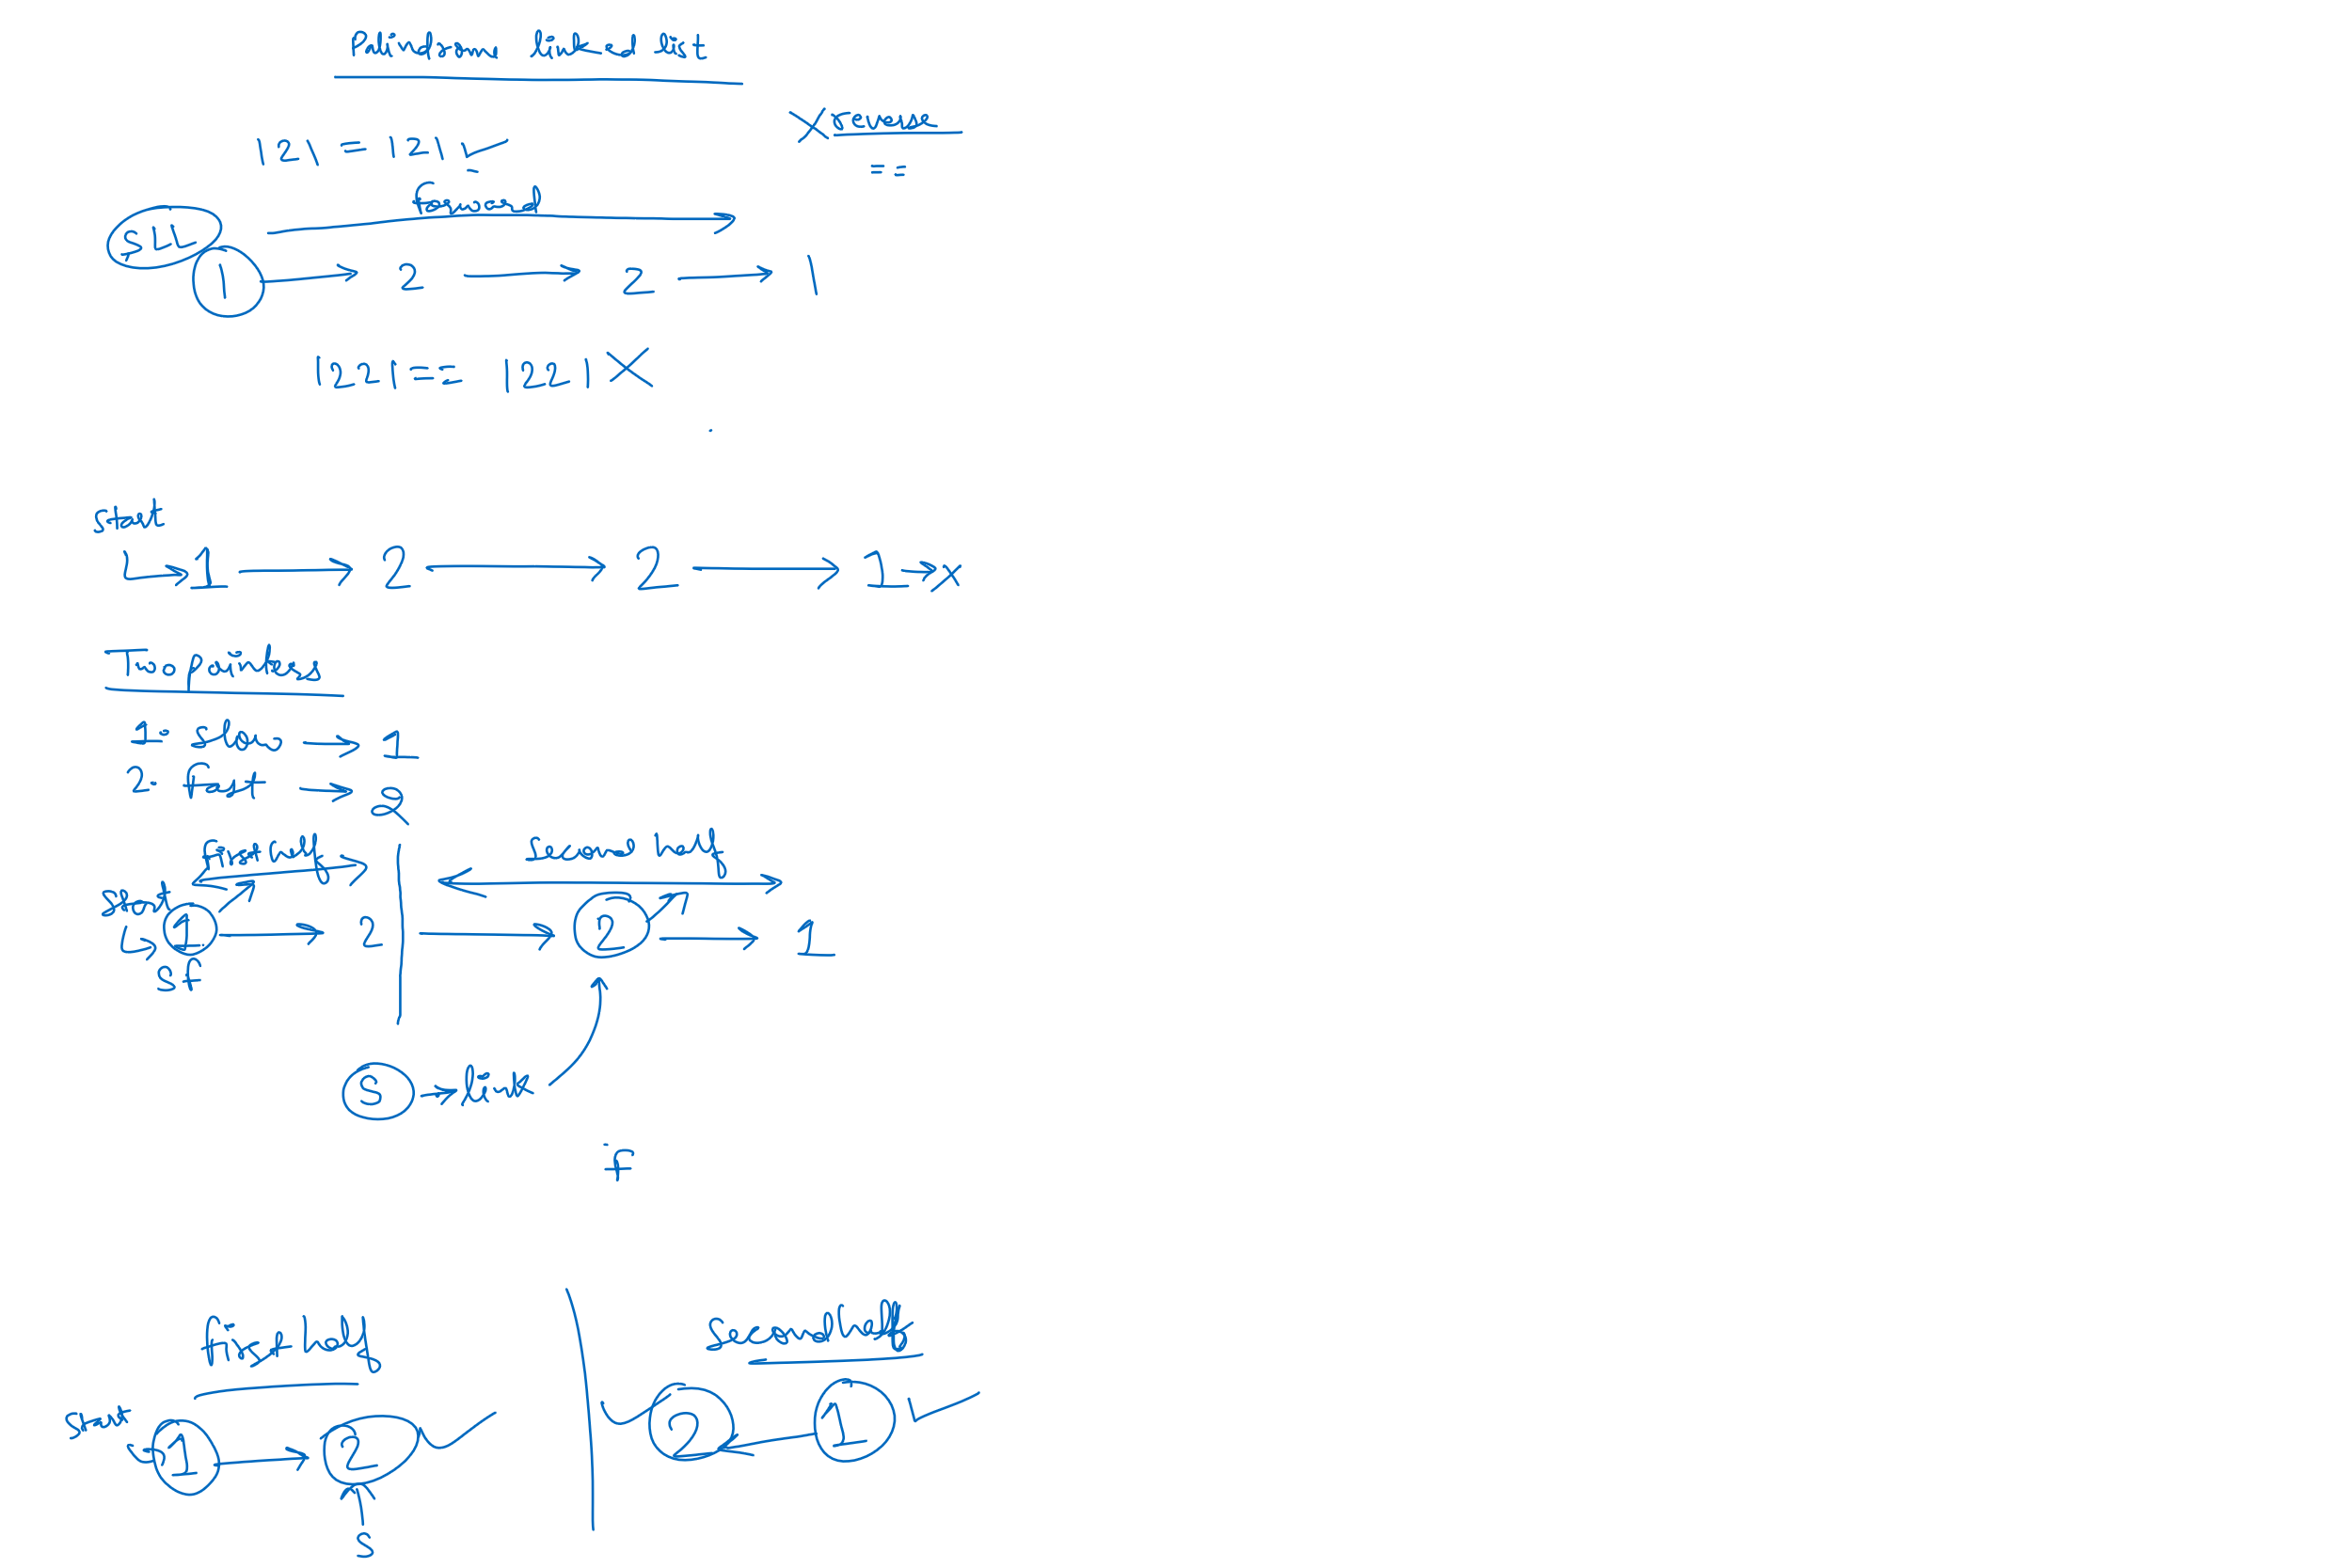 Palindrome linked list
X reverse
121 = 121 ✓
==
forward
SLL
1 → 2 → 2 → 1
1221 == 1221 X
start
1 → 2 → 2 → 1 → X
Two pointers
1. slow → 1
2. fast → 2
first half
second half
start
1 → 2 → 2 → 1
s f
S → link
f
first half
second half
start
1 → 2 ✓
✓ 2 ← 1 ✓
S